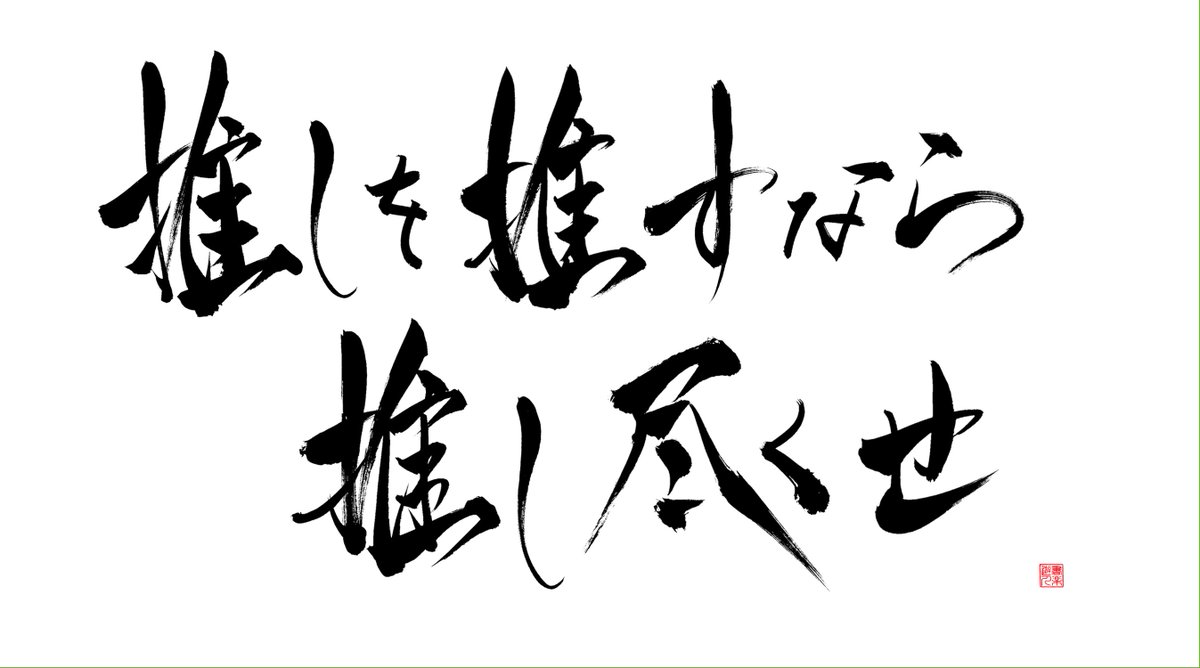 推しを推すなら
推し尽くせ